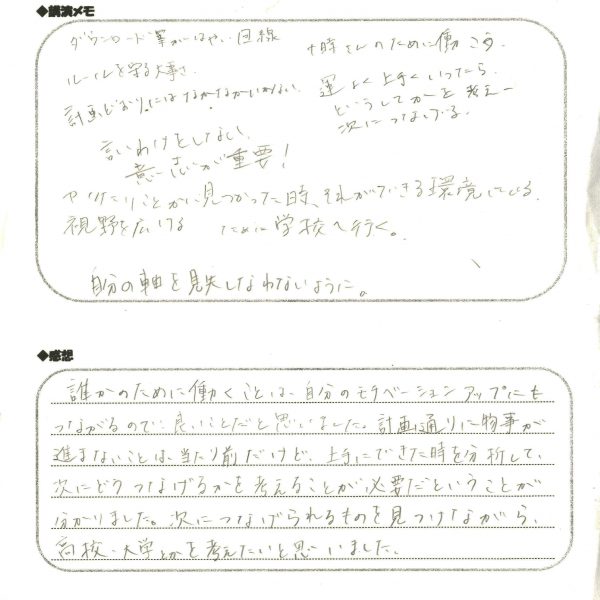 ◆講演メモ
ダウンロード 回線
ルールを守る大事さ
計画どおりにはなかなかいかない
言いわけをしない
意志が重要!
さんのために働こう.
運よく上手くいったら、
どうしてかを考え→
次につなげる.
やりたいことがに見つかった時、それができる環境にいる.
視野を広げる ために学校へ行く。
自分の軸を見失しなわないように。
◆感想
誰かのために働くことは、自分のモチベーションアップにも
つながるので、良いことだと思いました。計画通りに物事が
進まないことは、当たり前だけど、上手にできた時を分析して、
次にどうつなげるかを考えることが必要だということが
分かりました。次につなげられるものを見つけながら、
高校・大学とかを考えたいと思いました.